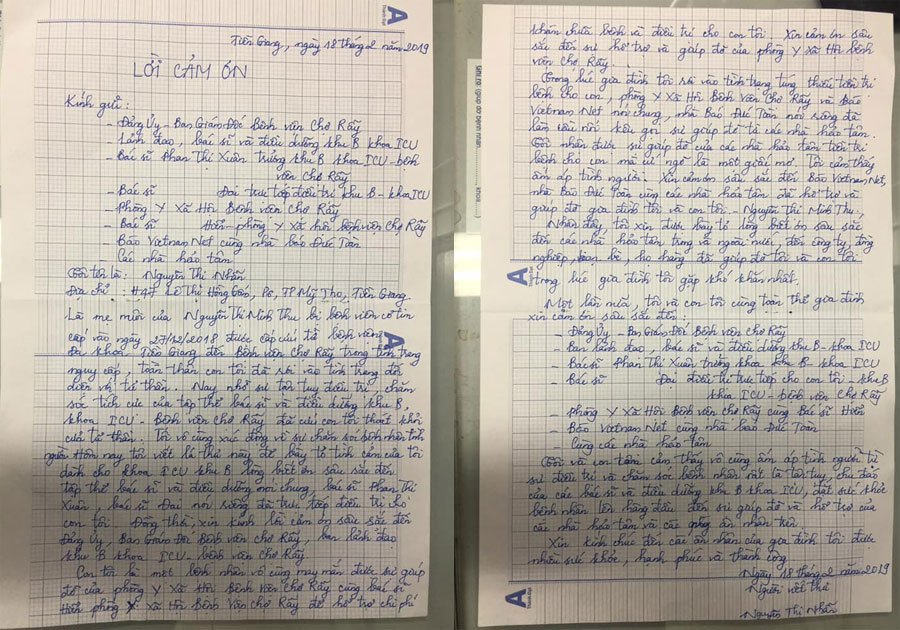 Tiền Giang, ngày 18 tháng 2 năm 2019
LỜI CẢM ƠN
Kính gửi:
- Đảng Ủy - Ban Giám Đốc Bệnh viện Chợ Rẫy
- Lãnh đạo, bác sĩ và điều dưỡng khu B khoa ICU
- Bác sĩ Phan Thị Xuân trưởng khu B khoa ICU - bệnh
viện Chợ Rẫy
- Bác sĩ Đại trực tiếp điều trị khu B - khoa ICU
- Phòng Y Xã Hội Bệnh viện Chợ Rẫy
- Bác sĩ Hiền - phòng Y Xã hội bệnh viện Chợ Rẫy
- Báo VietnamNet cùng nhà báo Đức Toàn
- Các nhà hảo tâm
Tôi tên là: Nguyễn Thị Nhẫn
Địa chỉ: 447 Lê Thị Hồng Gấm, P6, TP Mỹ Tho, Tiền Giang
Là mẹ nuôi của Nguyễn Thị Minh Thu bị bệnh viêm cơ tim
cấp vào ngày 27/12/2018 được cấp cứu từ bệnh viện
Đa khoa Tiền Giang đến Bệnh viện Chợ Rẫy trong tình trạng
nguy cấp, toàn thân con tôi đã rơi vào tình trạng đối
diện với tử thần. Nay nhờ sự tận tụy điều trị, chăm
sóc tích cực của tập thể bác sĩ và điều dưỡng khu B,
khoa ICU - Bệnh viện Chợ Rẫy đã cứu con tôi thoát khỏi
cửa tử thần. Tôi vô cùng xúc động về sự chăm sóc bệnh nhân tình
người Hôm nay tôi viết lá thư này để bày tỏ tình cảm của tôi
dành cho khoa ICU khu B lòng biết ơn sâu sắc đến
tập thể bác sĩ và điều dưỡng nói chung, bác sĩ Phan Thị
Xuân, bác sĩ Đại nói riêng đã trực tiếp điều trị cho
con tôi. Đồng thời, xin kính lời cảm ơn sâu sắc đến
Đảng Ủy, Ban Giám Đốc Bệnh viện Chợ Rẫy, ban lãnh đạo
khu B khoa ICU - bệnh viện Chợ Rẫy.
Con tôi là một bệnh nhân vô cùng may mắn được sự giúp
đỡ của phòng Y Xã Hội Bệnh viện Chợ Rẫy cùng bác sĩ
Hiền phòng Y Xã Hội Bệnh Viện Chợ Rẫy để hỗ trợ chi phí
khám chữa bệnh và điều trị cho con tôi. Xin cảm ơn sâu
sắc đến sự hỗ trợ và giúp đỡ của phòng Y Xã Hội bệnh
viện Chợ Rẫy.
Trong lúc gia đình tôi rơi vào tình trạng túng thiếu tiền trị
bệnh cho con, phòng Y Xã Hội Bệnh Viện Chợ Rẫy và Báo
VietnamNet nói chung, nhà Báo Đức Toàn nói riêng đã
làm cầu nối kêu gọi sự giúp đỡ từ các nhà hảo tâm.
Tôi nhận được sự giúp đỡ của các nhà hảo tâm tiền trị
bệnh cho con mà cứ ngỡ là một giấc mơ. Tôi cảm thấy
ấm áp tình người. Xin cảm ơn sâu sắc đến Báo VietnamNet,
nhà Báo Đức Toàn cùng các nhà hảo tâm đã hỗ trợ và
giúp đỡ gia đình tôi và con tôi - Nguyễn Thị Minh Thu.
Nhân đây, tôi xin được bày tỏ lòng biết ơn sâu sắc
đến các nhà hảo tâm trong và ngoài nước, đến công ty, đồng
nghiệp, bạn bè, họ hàng đã giúp đỡ tôi và con tôi
trong lúc gia đình tôi gặp khó khăn nhất.
Một lần nữa, tôi và con tôi cùng toàn thể gia đình
xin cảm ơn sâu sắc đến:
- Đảng Ủy - Ban Giám Đốc Bệnh viện Chợ Rẫy
- Ban lãnh đạo, bác sĩ và điều dưỡng khu B - khoa ICU
- Bác sĩ Phan Thị Xuân trưởng khoa khu B - khoa ICU
- Bác sĩ Đại điều trị trực tiếp cho con tôi - khu B
khoa ICU - bệnh viện Chợ Rẫy
- Phòng Y Xã Hội Bệnh viện Chợ Rẫy cùng Bác sĩ Hiền
- Báo VietnamNet cùng nhà báo Đức Toàn
Cùng các nhà hảo tâm
Tôi và con cảm thấy vô cùng ấm áp tình người từ
sự điều trị và chăm sóc bệnh nhân rất là tận tụy, chu đáo
của các bác sĩ và điều dưỡng khu B khoa ICU, đặt sức khỏe
bệnh nhân lên hàng đầu đến sự giúp đỡ và hỗ trợ của
các nhà hảo tâm và các ân nhân trên.
Xin kính chúc đến các ân nhân của gia đình tôi được
nhiều sức khỏe, hạnh phúc và thành công
Ngày 18 tháng 2 năm 2019
Người viết thư
Nguyễn Thị Nhẫn